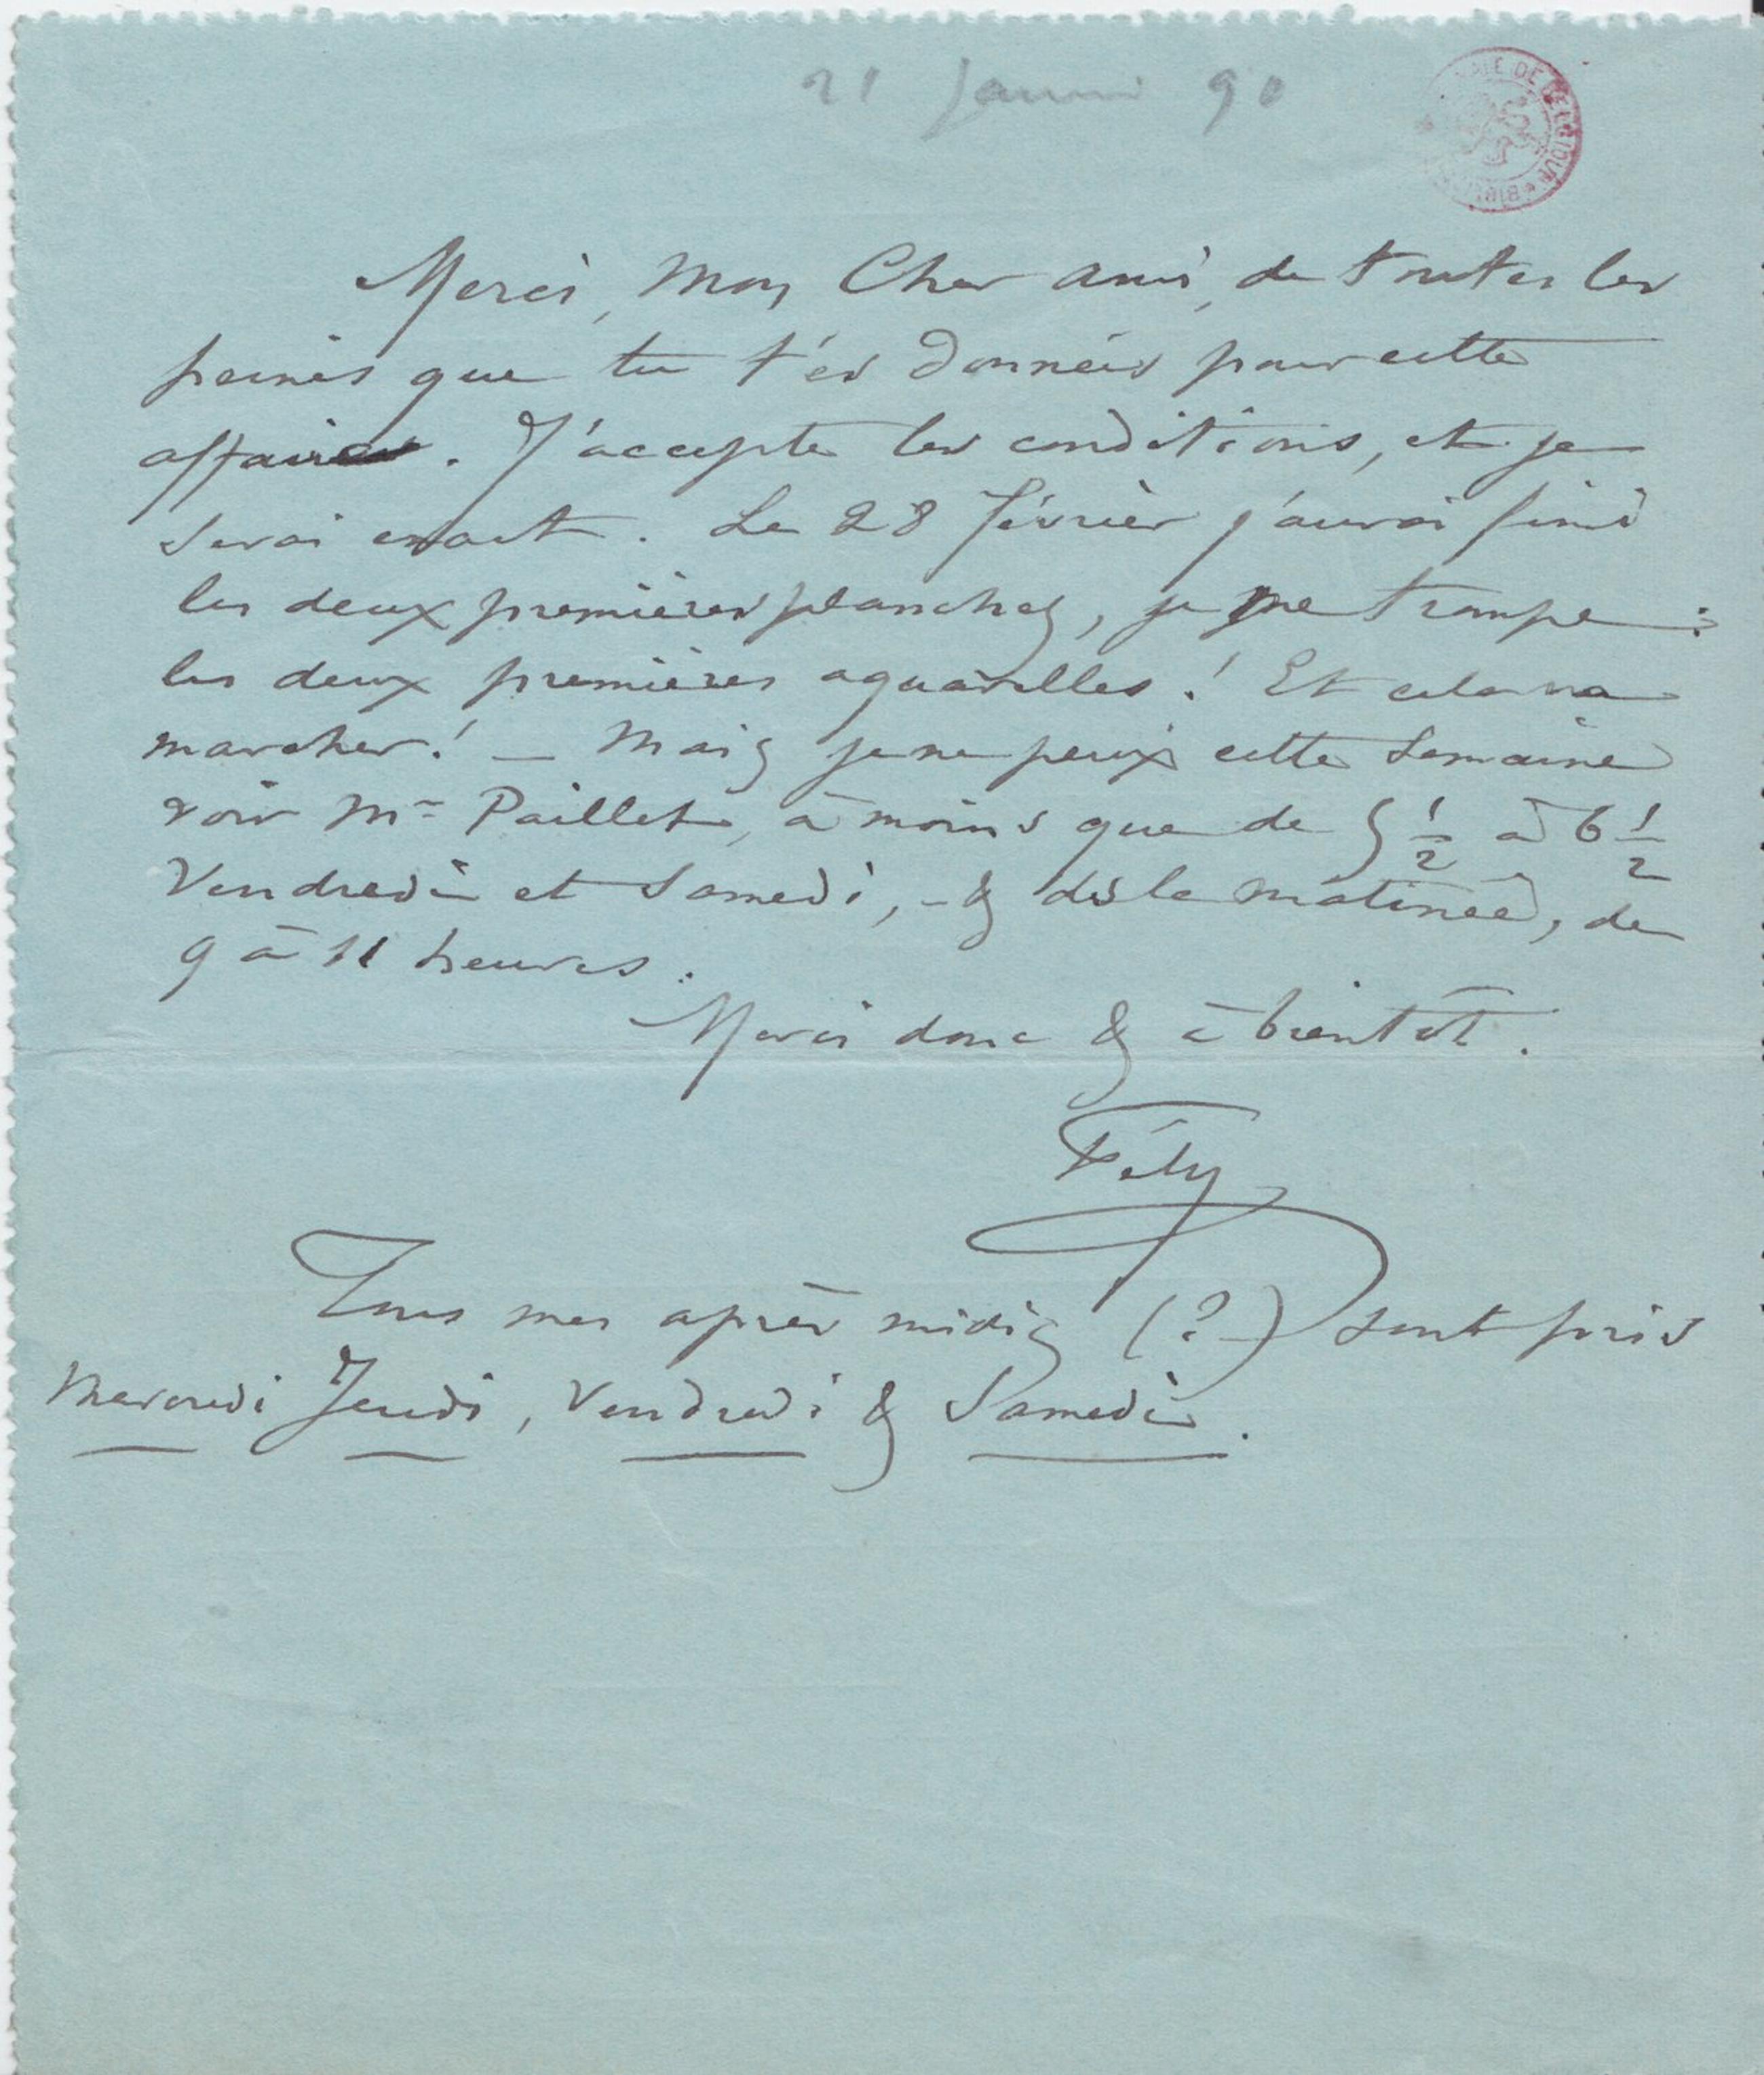 21 Janvier 90
BIBL ALE DE BELGIQUE
Merci, Mon Cher Ami, de toutes les
peines que tu t'es données pour cette
affaire. J'accepte les conditions, et je
serai exact. Le 28 Février j'aurai fini
les deux premières planches, je me trompe :
les deux premières aquarelles ! Et cela va
marcher ! — Mais je ne peux cette semaine
voir Mr Paillet, à moins que de 5 1/2 à 6 1/2
Vendredi et Samedi, - & dès la matinée, de
9 à 11 heures.
Merci donc & à bientôt.
Fély
Tous mes après midis (?) sont pris
Mercredi Jeudi, Vendredi & Samedi.